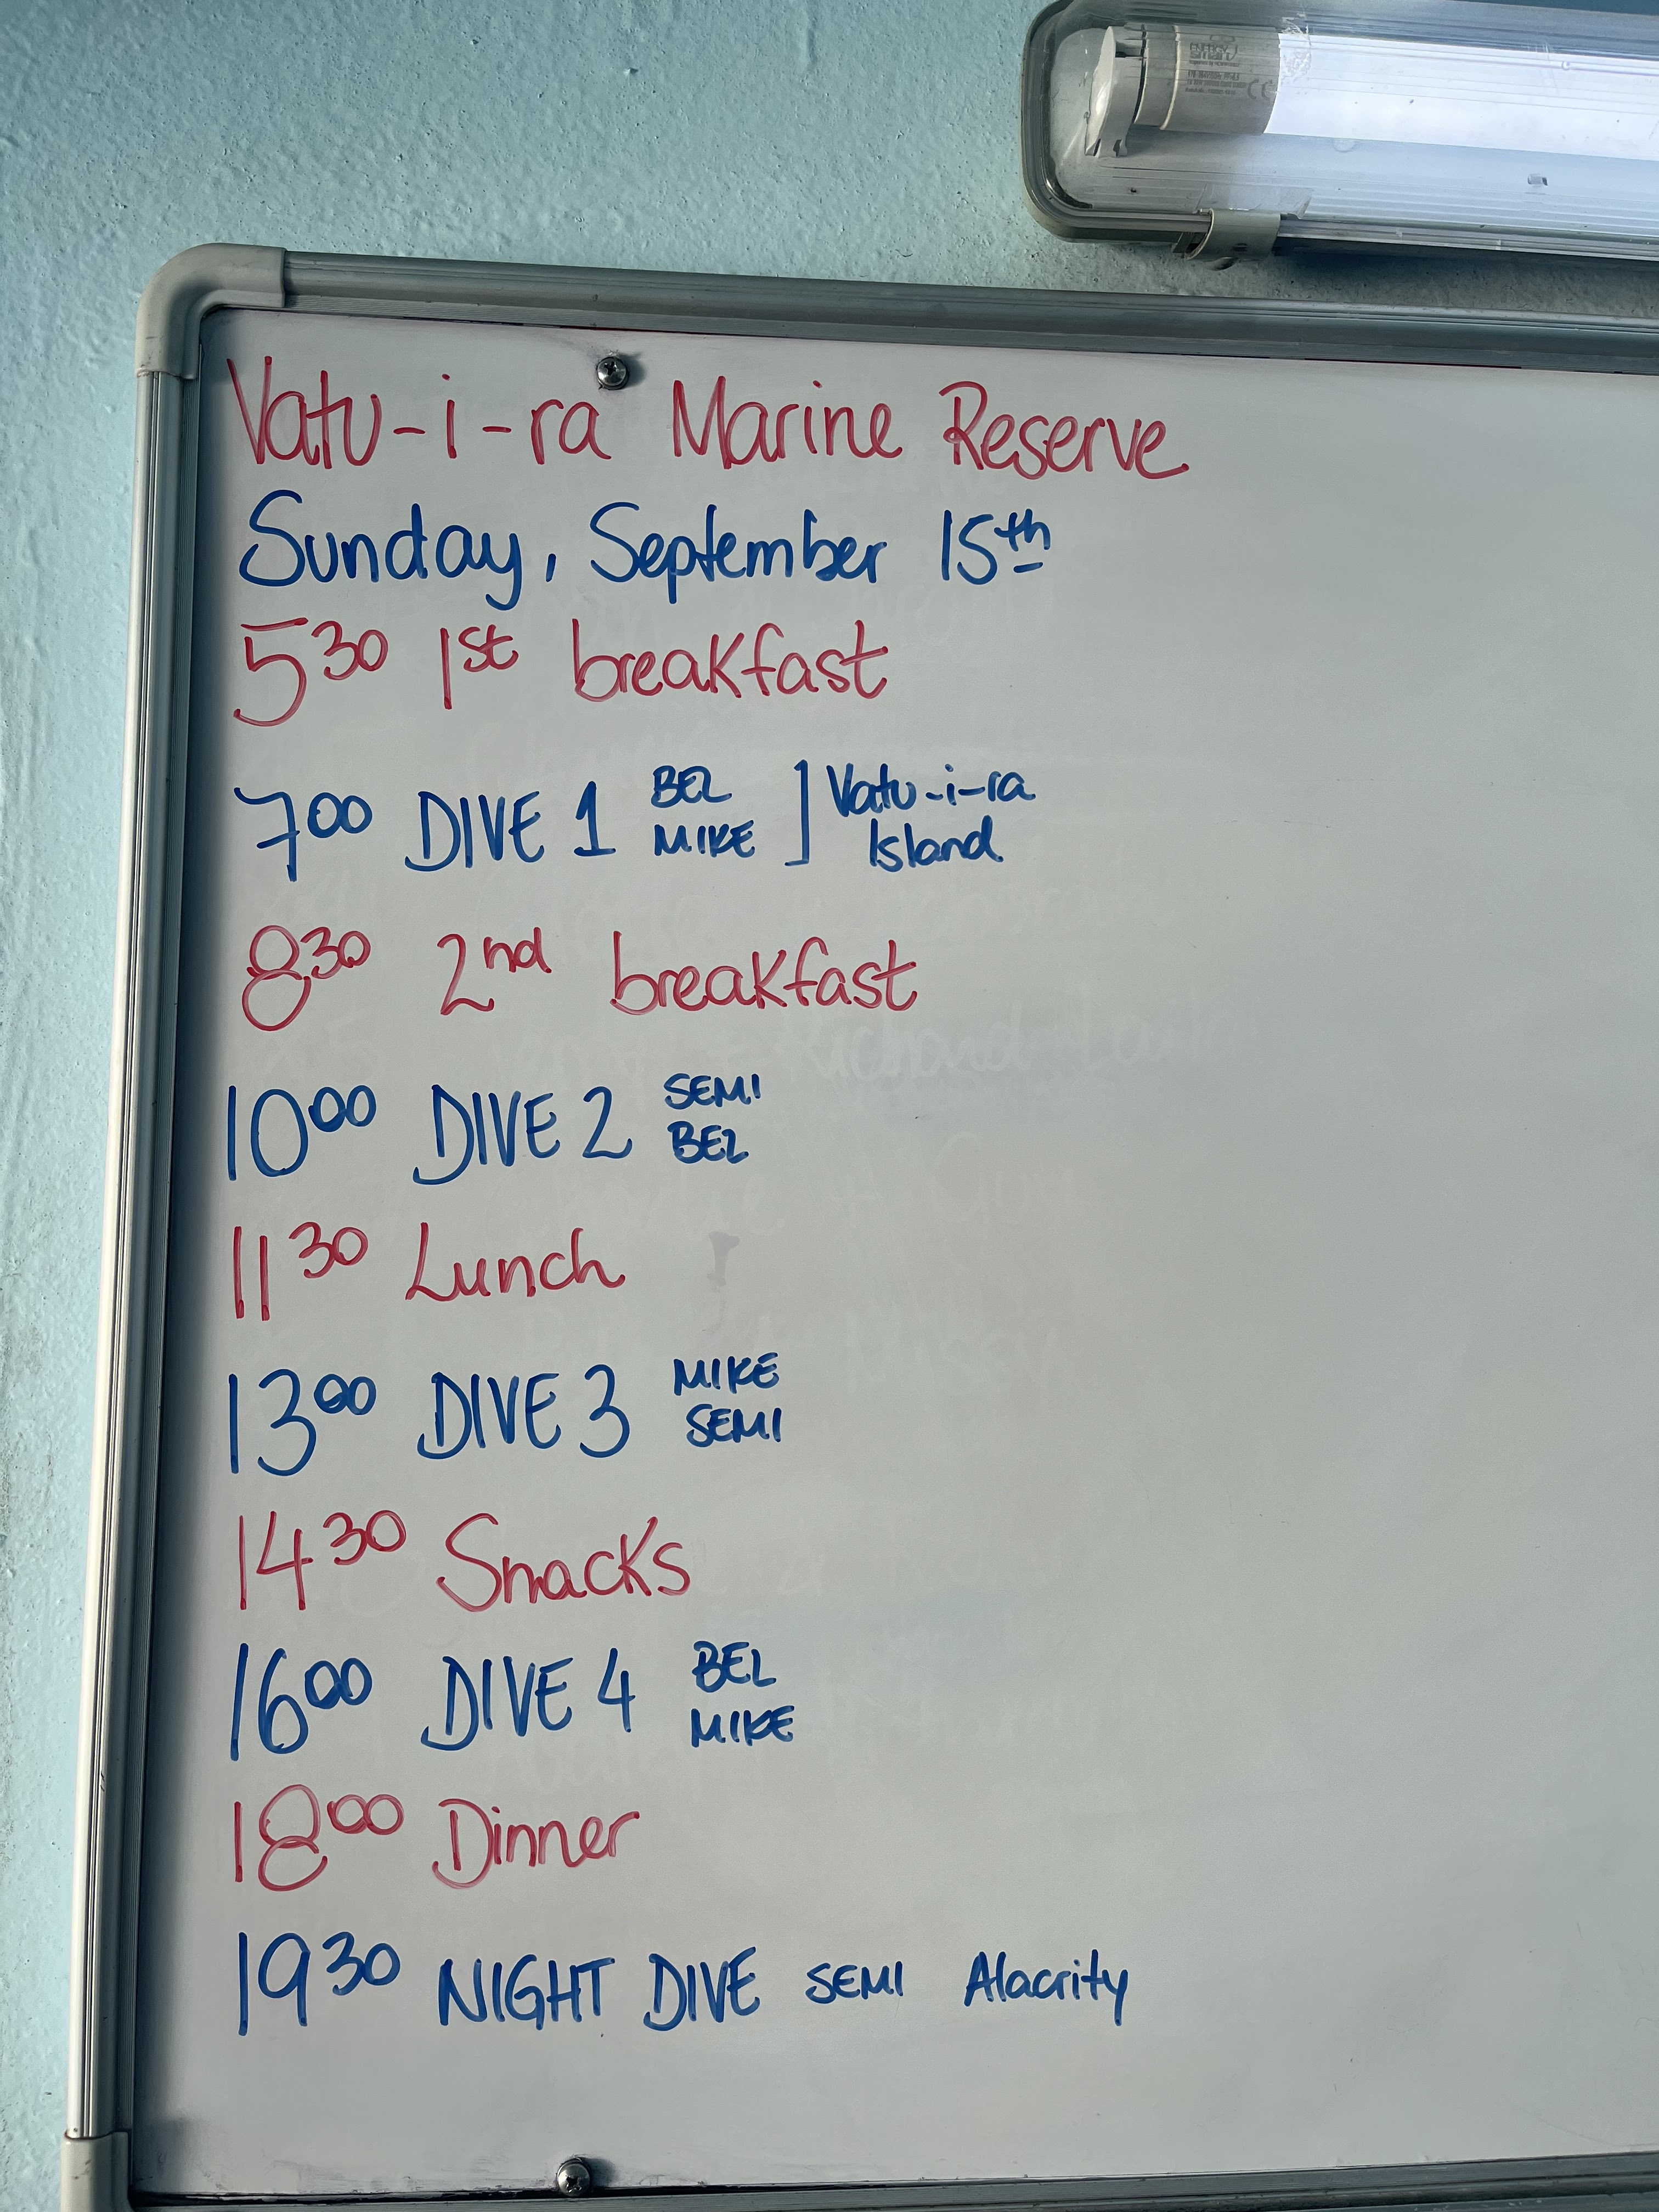 Vatu-i-ra Marine Reserve
Sunday, September 15th
5 30 1st breakfast
7 00 DIVE 1 BEL MIKE ] Vatu-i-ra Island
8 30 2nd breakfast
10 00 DIVE 2 SEMI BEL
11 30 Lunch
13 00 DIVE 3 MIKE SEMI
14 30 Snacks
16 00 DIVE 4 BEL MIKE
18 00 Dinner
19 30 NIGHT DIVE SEMI Alacrity